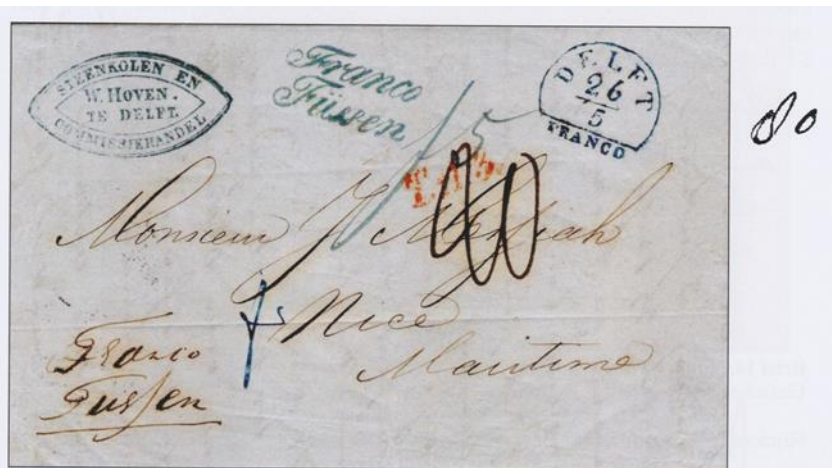 STEENKOLEN EN
W. HOVEN.
TE DELFT.
COMMISSIEHANDEL
Franco
Füssen
DELFT
26
5
FRANCO
80
Monsieur J Messiah
Nice
Maritime
Franco
Fussen